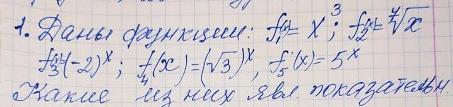 1. Даны функции: f₁(x)= x³; f₂(x)= ∜x
f₃(x)(-2)ˣ; f₄(x)=(√3)ˣ, f₅(x)=5ˣ
Какие из них явл. показательн.